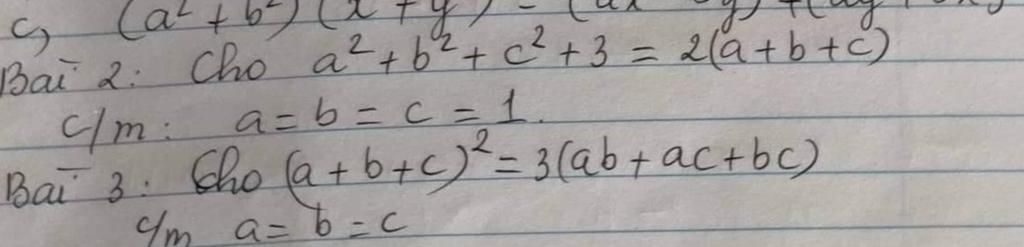 c, (a² + b²) (x + y) = (ax y) + (ay
Bài 2: Cho a² + b² + c² + 3 = 2(a + b + c)
c/m: a = b = c = 1.
Bài 3: Cho (a + b + c)² = 3(ab + ac + bc)
c/m a = b = c